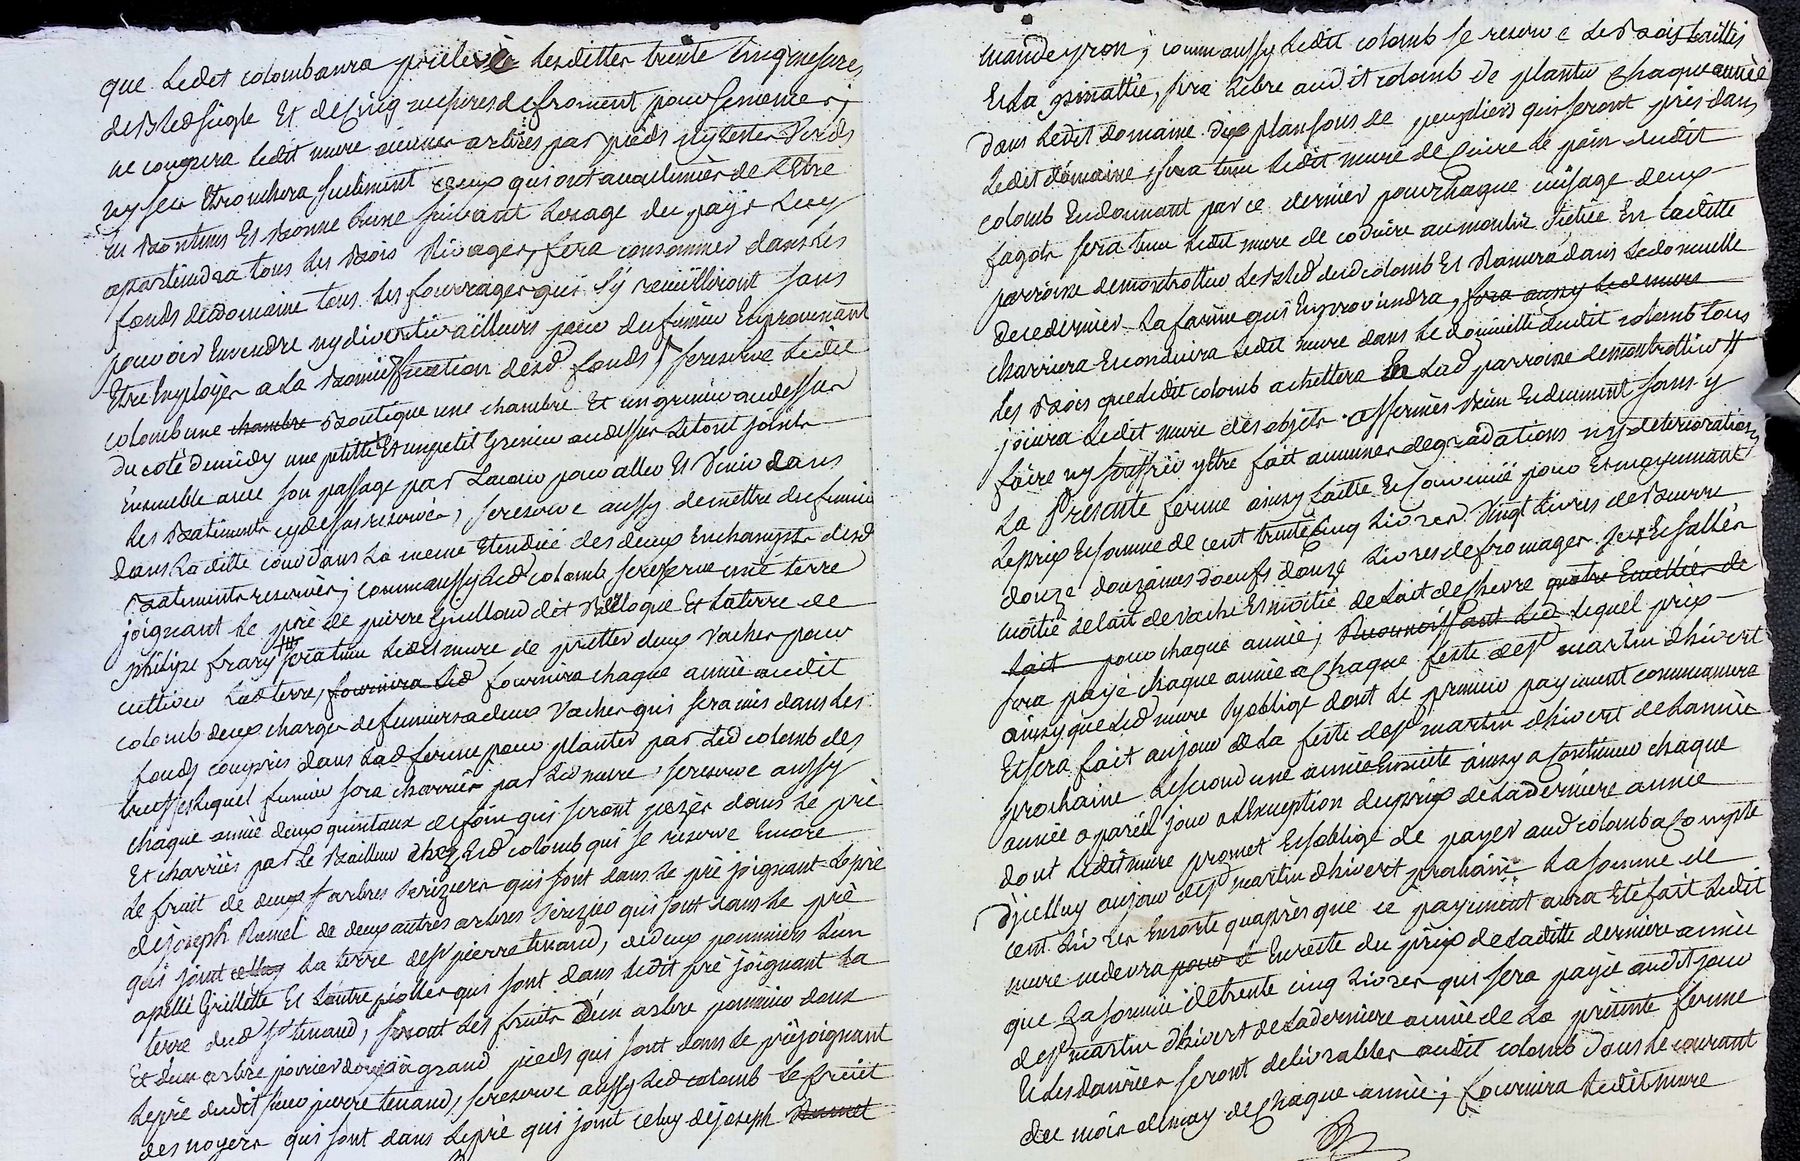 que Ledet colomb aura prelevé Lesdittes trente Cinq mesures
de Bled siegle Et de Cinq mesures de froment pour semences ;
ne coupera Ledit mure aucuns arbres par pieds ny testes Verds
ny secs Etronchera seulement ceux qui ont accoutumés de L'Etre
En Bontems Et Bonne Lune suivant Lusage du pays Luy
apartiendra tous Les Bois Rivages, fera consommer dans Les
fonds dud domaine tous Les fourrages qui s'y recuilliront sans
pouvoir En vendre ny divertir ailleurs pour du fumier En provenant
Etre Employés a La Bonnification desd fonds, se reserve Ledit
colomb une chambre Boutique une chambre Et un grenier au dessus
du coté de midy une petitte Et un petit Grenier au dessus Le tout joints
Ensemble avec son passage par Lacour pour aller Et Venir dans
Les Batiments cy dessus reservés, se reserve aussy de mettre du fumier
dans La ditte cour dans La meme Etendüe des deux Enchamps desd
Batiments reservés ; comm aussy Led colomb se reserve une terre
joignant Le pré de pierre Guilloud dit Belloque Et La terre de
philipe frary sera tenu Ledit mure de pretter deux Vaches pour
cultiver Lad terre, fournira Led fournira chaque année audit
colomb deux charges de fumiers a deux Vaches qui sera mis dans Les
fonds compris dans Lad ferme pour planter par Led colomb des
truffes Lequel fumier sera charrier par Led mure, se reserve aussy
chaque année deux quintaux de foin qui seront pezés dans Le pré
Et charriés par Le Bailleur chez Led colomb qui se reserve Encore
Le fruit de deux arbres seriziers qui sont dans Le pré joignant Le pré
de joseph Ramel de deux autres arbres serizier qui sont dans Le pré
qui joint celluy La terre de sr pierre tenaud, de deux pommiers L'un
apellé Grillette Et Lautre piolles qui sont dans Ledit pré joignant La
terre dud sr tenaud, seront Les fruits d'un arbre pommier doux
Et d'un arbre poirier à grand pieds qui sont dans Le pré joignant
Le pré dudit sieur pierre tenaud, se reserve aussy Led colomb Le fruit
des noyers qui sont dans Le pré qui joint celuy de joseph Ramel
mandeyron ; comm aussy Ledit colomb se reserve Le Bois
Et La sera Libre audit colomb de planter chaque année
dans Ledit domaine dix plansons de peupliers qui seront pris dans
Ledit domaine, sera tenu Ledit mure de Cuire Le pain dudit
colomb En donnant par ce dernier pour chaque cuisage deux
fagots sera tenu Ledit mure de conduire au moulin En Laditte
parroisse de montrottier Le Bled dud colomb Et Ramera dans Le domicille
de ce dernier La farine qui En proviendra, sera aussy Led mure
charriera Et conduira Ledit mure dans Le domicille dudit colomb tous
Les Bois que Ledit colomb achettera En Lad parroisse de montrottier
joüira Ledit mure des objets affermés Bien Et düement sans y
faire ny souffrir y Etre fait aucunes degradations ny deteriorations
La Presente ferme ainsy faitte Et Convenüe pour Et moyennant
Le prix Et somme de cent trente Cinq Livres Vingt Livres de Beurre
douze douzaines d'oeufs douze Livres de fromages
moitié de Lait de Vache Et moitié de Lait de chevre quatre de
Lait pour chaque année ; Led Lequel prix
sera payé chaque année a chaque feste de st martin d'hivert
ainsy que Led mure s'y oblige dont Le premier payement commencera
Et sera fait au jour de La feste de st martin d'hivert de Lannée
prochaine Le second une année Ensuite ainsy a Continuer chaque
année a pareil jour a Lexception du prix de La derniere année
dont Ledit mure promet Et s'oblige de payer aud colomb a Compte
d'jcelluy au jour de st martin d'hivert prochaine La somme de
cent Livres En sorte qu'aprés que ce payement aura Eté fait Ledit
mure ne devra pour Le En reste du prix de Laditte derniere année
que La somme de trente cinq Livres qui sera payée audit jour
de st martin d'hivert de La derniere année de La presente ferme
Et Les danrées seront delivrables audit colomb dans Le courant
du mois de may de Chaque année ; fournira Ledit mure